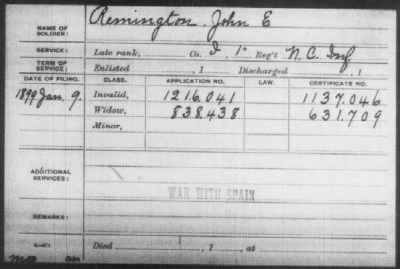 NAME OF SOLDIER: Remington, John E
SERVICE: Late rank, Co. I, 1" Reg't N.C. Inf.
TERM OF SERVICE: Enlisted , 1 Discharged , 1
DATE OF FILING. CLASS. APPLICATION NO. LAW. CERTIFICATE NO.
1899 Jan. 9. Invalid, 1216.041 1137.046
Widow, 838.438 631.709
Minor,
ADDITIONAL SERVICES:
WAR WITH SPAIN
REMARKS:
Died , 1 , at